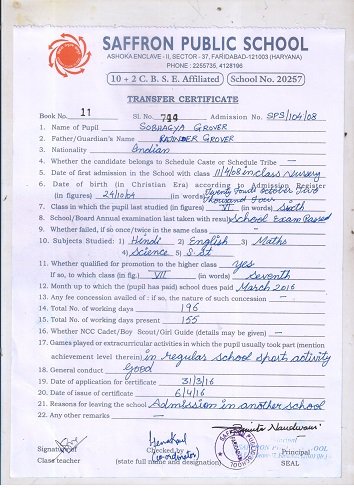 SAFFRON PUBLIC SCHOOL
ASHOKA ENCLAVE - II, SECTOR - 37, FARIDABAD-121003 (HARYANA)
PHONE : 2255735, 4128196
10 + 2 C. B. S. E. Affiliated School No. 20257
TRANSFER CERTIFICATE
Book No. 11 Sl. No. 744 Admission No. SPS/104/08
1. Name of Pupil SOBHAGYA GROVER
2. Father/Guardian's Name RAJINDER GROVER
3. Nationality Indian
4. Whether the candidate belongs to Schedule Caste or Schedule Tribe —
5. Date of first admission in the School with class 11/4/08 in class nursery
6. Date of birth (in Christian Era) according to Admission Register
(in figures) 24/10/04 (in words) Twenty Fourth October Two
Thousand Four
7. Class in which the pupil last studied (in figures) VI (in words) sixth
8. School/Board Annual examination last taken with result School Exam Passed
9. Whether failed, if so once/twice in the same class —
10. Subjects Studied: 1) Hindi 2) English 3) Maths
4) Science 5) S.St
11. Whether qualified for promotion to the higher class yes
If so, to which class (in fig.) VII (in words) Seventh
12. Month up to which the (pupil has paid) school dues paid March 2016
13. Any fee concession availed of : if so, the nature of such concession —
14. Total No. of working days 196
15. Total No. of working days present 155
16. Whether NCC Cadet/Boy Scout/Girl Guide (details may be given) —
17. Games played or extracurricular activities in which the pupil usually took part (mention
achievement level therein) in regular school sports activity
18. General conduct Good
19. Date of application for certificate 31/3/16
20. Date of issue of certificate 6/4/16
21. Reasons for leaving the school Admission in another school
22. Any other remarks —
Signature of Checked by Principal
Class teacher (state full name and designation) SEAL
(co-ordinator)